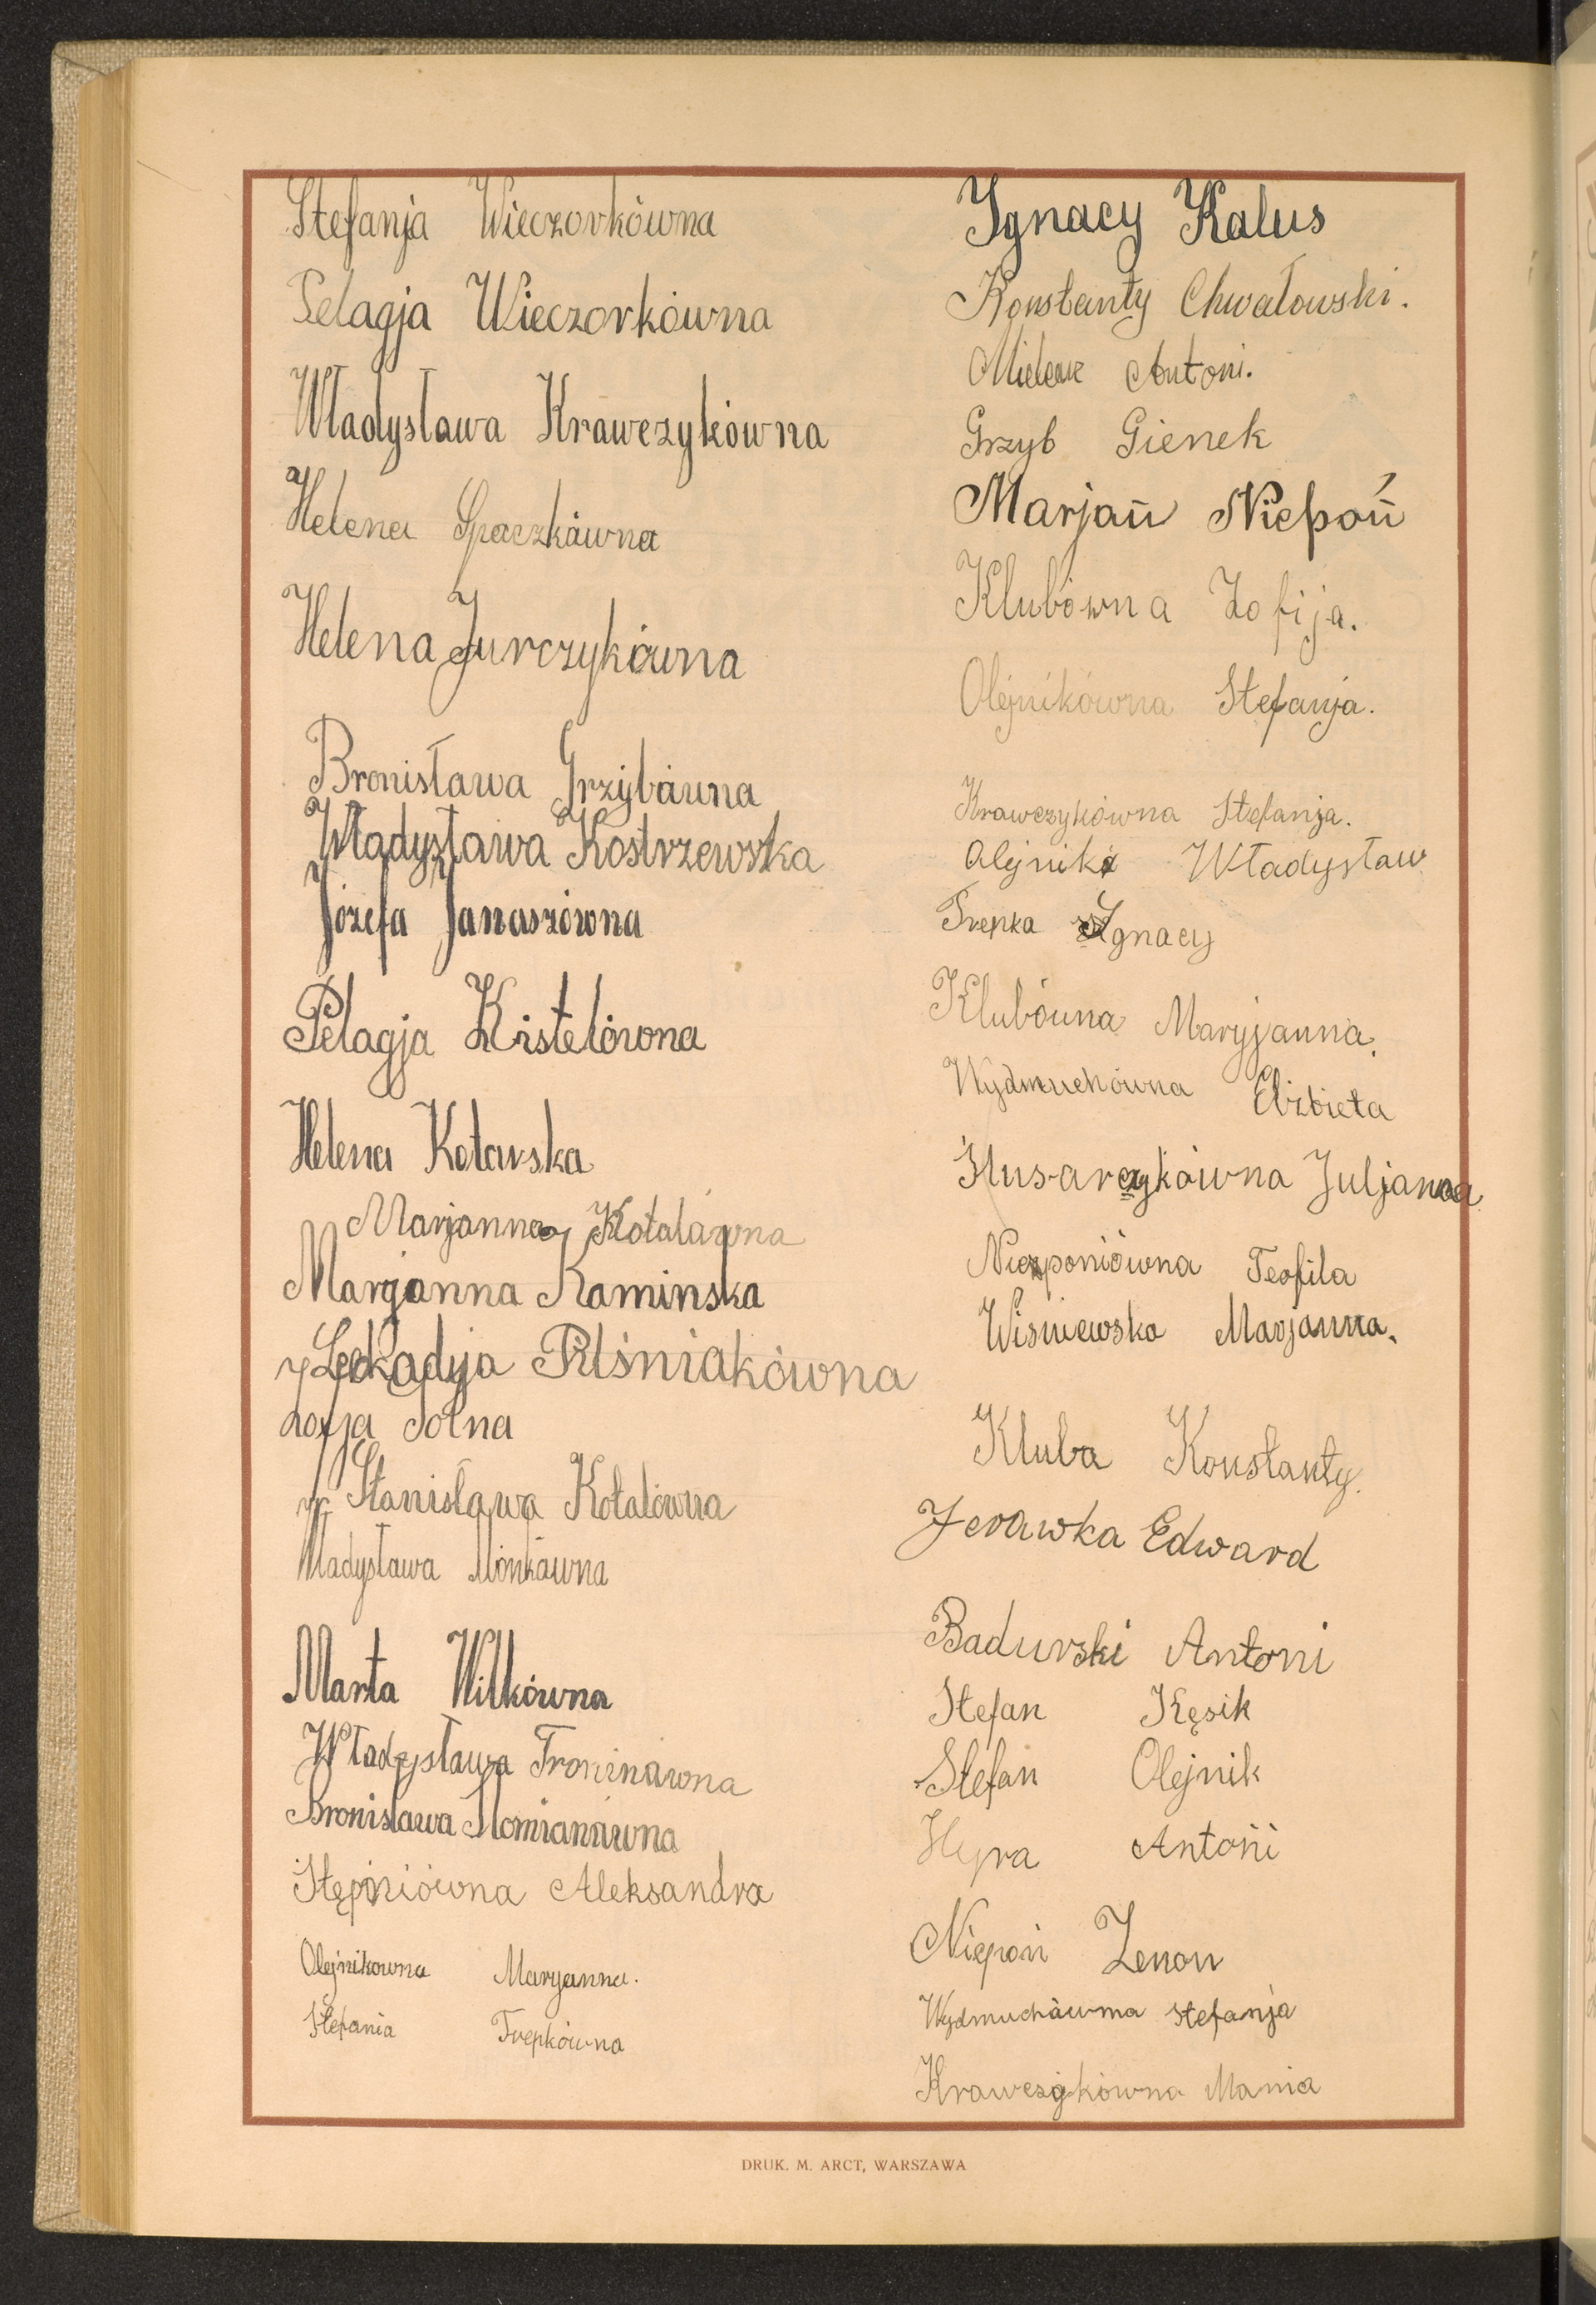 Stefanja Wieczorkówna
Pelagja Wieczorkówna
Władysława Krawczykówna
Helena Spaczkówna
Helena Jurczykówna
Bronisława Grzybówna
Władysława Kostrzewska
Józefa Janaszówna
Pelagja Kistelówna
Helena Kotarska
Marjanna Kotalówna
Marjanna Kaminska
Leokadyja Pluśniakówna
Zofja Solna
Stanisława Kotalówna
Władysława Monkówna
Marta Wilkówna
Władysława Froninówna
Bronisława Słomianówna
Stępniówna Aleksandra
Olejnikowna Maryanna.
Stefania Trepkówna
Ignacy Kalus
Konstanty Chwałowski.
Antoni.
Grzyb Gienek
Marjan Niepoń
Klubówna Zofija.
Olejnikówna Stefanja.
Krawczykówna Stefanja.
Olejnik Władysław
Trepka Ignacy
Klubówna Maryjanna.
Wydmuchówna Elżbieta
Husarczykówna Juljanna
Niezponiówna Teofila
Wiśniewska Marjanna.
Kluba Konstanty.
Jerawka Edward
Badurski Antoni
Stefan Kęsik
Stefan Olejnik
Hyra Antoni
Niepoń Zenon
Wydmuchówna Stefanja
Krawczykówna Mania
DRUK. M. ARCT, WARSZAWA